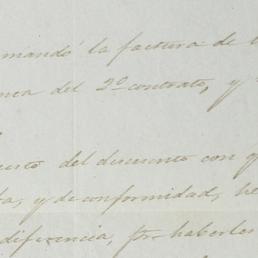 mandó la factura de
del 2º contrato, y
del descuento con q
y de conformidad, he
diferencia, por haberles